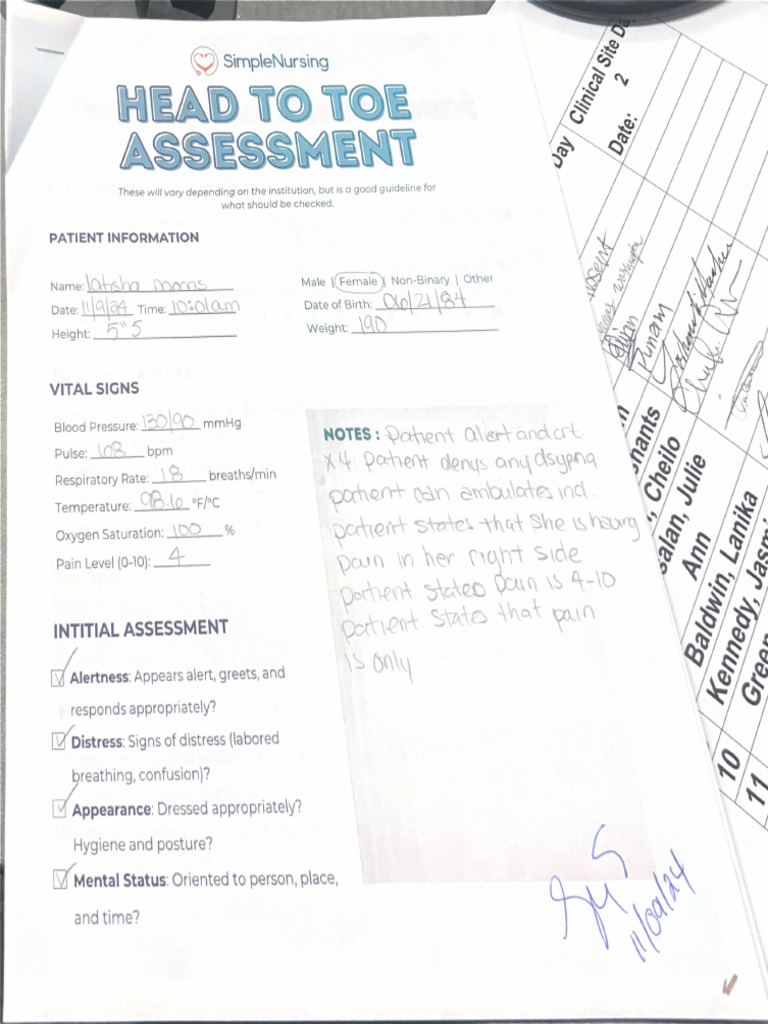 SimpleNursing
HEAD TO TOE
ASSESSMENT
These will vary depending on the institution, but is a good guideline for
what should be checked.
PATIENT INFORMATION
Name: latisha morris
Date: 11/9/24 Time: 10:01am
Height: 5"5
Male | Female | Non-Binary | Other
Date of Birth: 06/21/84
Weight: 190
VITAL SIGNS
Blood Pressure: 130/90 mmHg
Pulse: 108 bpm
Respiratory Rate: 18 breaths/min
Temperature: 98.6 °F/°C
Oxygen Saturation: 100 %
Pain Level (0-10): 4
NOTES: Patient alert and ort
x4. Patient denys any dsypna
patient can ambulates ind.
patient states that she is having
pain in her right side
patient stated pain is 4-10
patient states that pain
is only
INTITIAL ASSESSMENT
Alertness: Appears alert, greets, and
responds appropriately?
Distress: Signs of distress (labored
breathing, confusion)?
Appearance: Dressed appropriately?
Hygiene and posture?
Mental Status: Oriented to person, place,
and time?
11/09/24
Day
Clinical Site
2
Date:
Punam
nants
Cheilo
salan, Julie
Ann
Baldwin, Lanika
10 Kennedy, Jasmi
11 Green